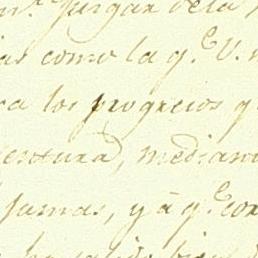 Juzgar de la
como la q.e V.
a los progrecios q
entura, median
jamas, y á q.e con